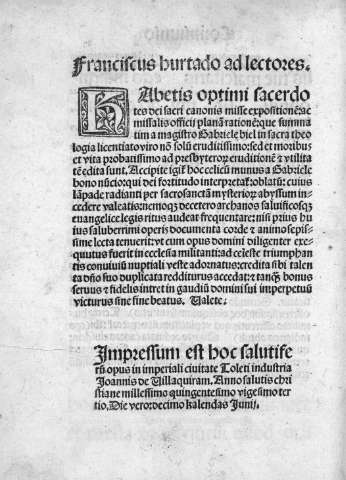 Franciscus hurtado ad lectores.
HAbetis optimi sacerdo
tes dei sacri canonis misse expositionē: ac
missalis officij planā rationēque summa
tim a magistro Gabriele biel in sacra theo
logia licentiato viro nō solū eruditissimo: sed et moribus
et vita probatissimo ad presbyterop̄ eruditionē & vtilita
tē edita sunt. Accipite igit̄ hoc celicū munus a Gabriele
bono nūcio: qui dei fortitudo interpretat̄: oblatū: cuius
lāpade radianti per sacrosancta mysterioꝝ abyssum in
cedere valeatis: nemoqꝫ decetero archanos salutificosqꝫ
euangelice legis ritus audeat frequentare: nisi prius hu
ius saluberrimi operis documenta corde & animo sepis-
sime lecta tenuerit: vt cum opus domini diligenter exe-
quutus fuerit in ecclesia militanti: ad celeste triumphan
tis conuiuiū nuptiali veste adornatus: credita sibi talen
ta dño suo duplicata redditurus accedat: & tanqꝫ bonus
seruus & fidelis intret in gaudiū domini sui imperpetuū
victurus sine fine beatus. Valete.
Impressum est hoc salutife
rū opus in imperiali ciuitate Toleti industria
Joannis de Villaquiram. Anno salutis chri
stiane millessimo quingentesimo vigesimo ter
tio. Die vero: decimo kalendas Junij.